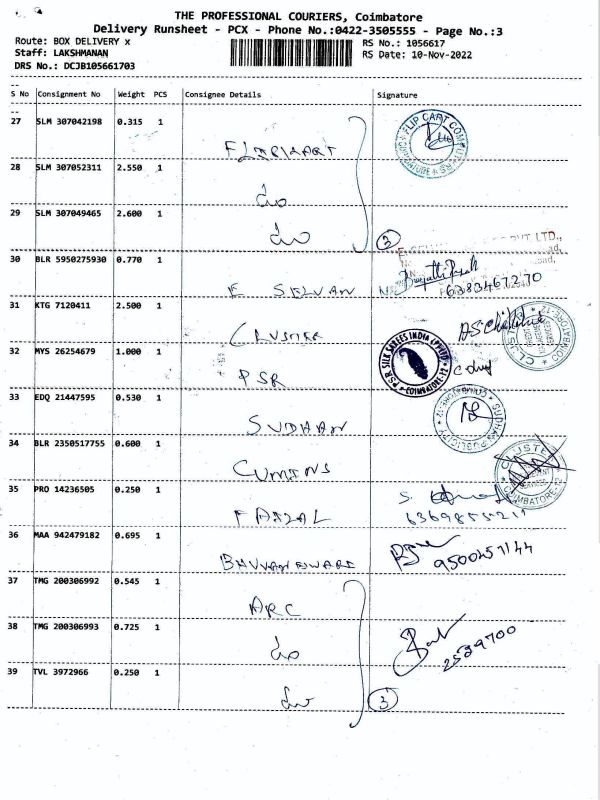 THE PROFESSIONAL COURIERS, Coimbatore
Delivery Runsheet - PCX - Phone No.:0422-3505555 - Page No.:3
Route: BOX DELIVERY x
RS No.: 1056617
Staff: LAKSHMANAN
RS Date: 10-Nov-2022
DRS No.: DCJB105661703
S No Consignment No Weight PCS Consignee Details Signature
27 SLM 307042198 0.315 1
FLIPKART
FLIP CART COIMBATORE
28 SLM 307052311 2.550 1
do
29 SLM 307049465 2.600 1
do
3
30 BLR 5950275930 0.770 1
E SELVAN
6383467270
31 KTG 7120411 2.500 1
CLUSTER
32 MYS 26254679 1.000 1
PSR
PSR SILK SAREES INDIA (P) LTD
COIMBATORE-12
33 EDQ 21447595 0.530 1
SUDHAN
34 BLR 2350517755 0.600 1
CUMINS
CLUSTER
COIMBATORE-12
35 PRO 14236505 0.250 1
FAIZAL
S.
36 MAA 942479182 0.695 1
BHUVANESWARI
9500451144
37 TMG 200306992 0.545 1
ARC
38 TMG 200306993 0.725 1
do
2529700
39 TVL 3972966 0.250 1
do
3